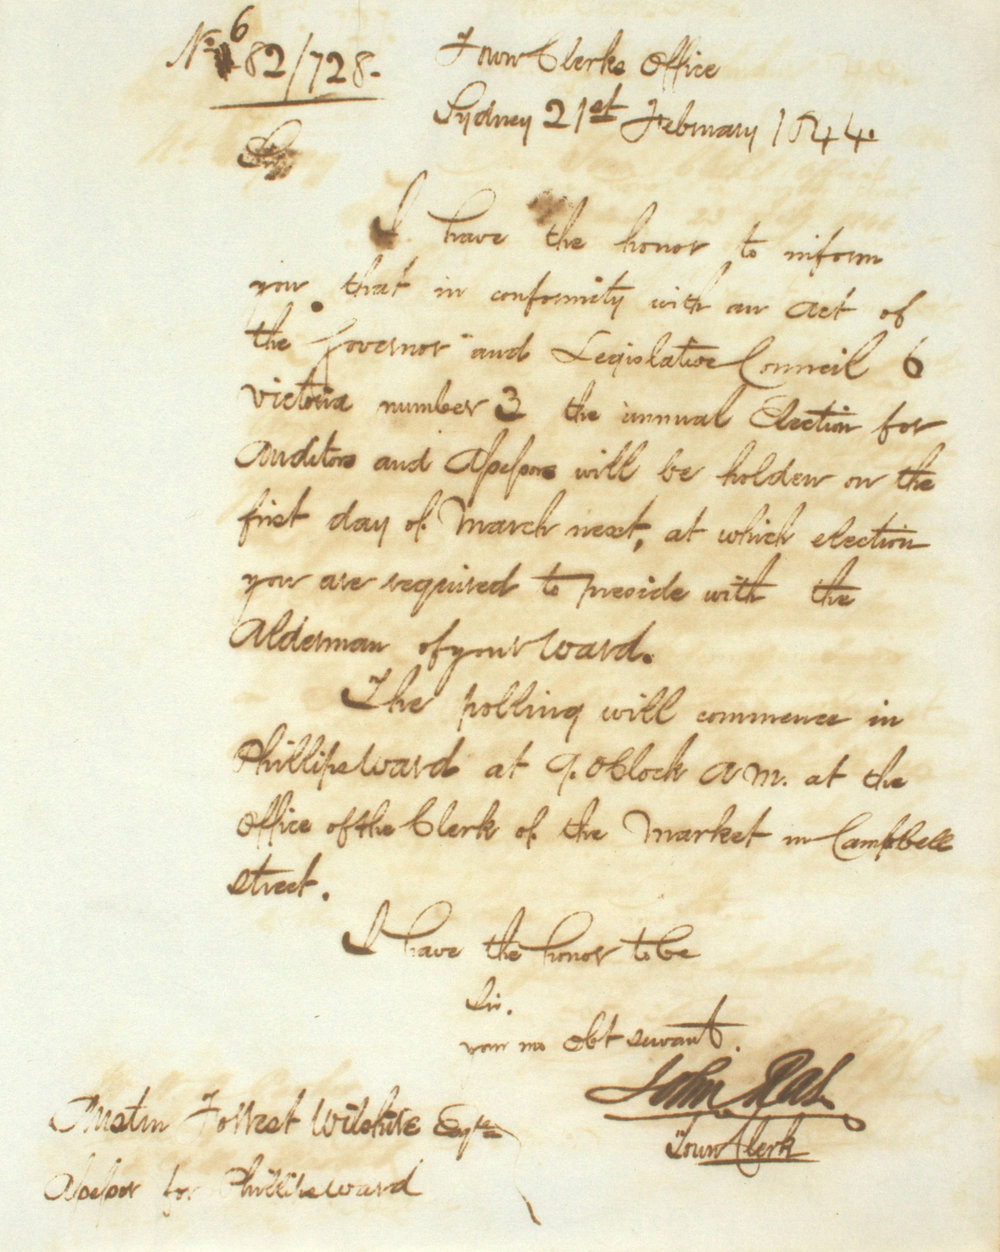 No. 682/728.
Town Clerks Office
Sydney 21st February 1844.
Sir
I have the honor to inform
you that in conformity with an Act of
the Governor and Legislative Council 6
Victoria number 3 the annual Election for
Auditors and Assessors will be holden on the
first day of March next, at which election
you are required to preside with the
Alderman of your Ward.
The polling will commence in
Phillips Ward at 9. OClock A M. at the
Office of the Clerk of the Market in Campbell
Street.
I have the honor to be
Sir.
your mo Obt servant.
John Rae
Town Clerk
Austin Forrest Wilshire Esqre
Assessor for Phillips Ward